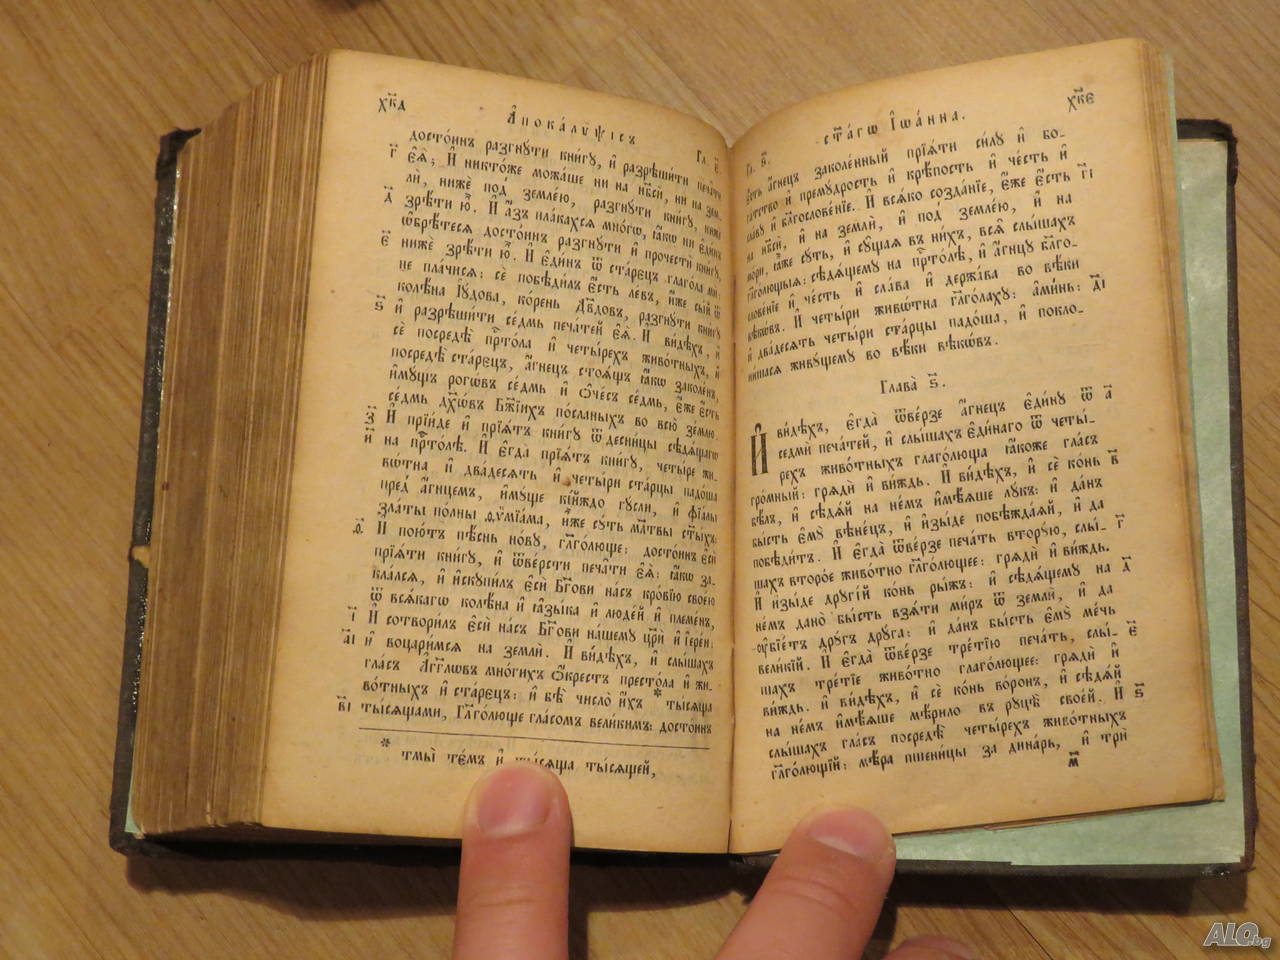 х҃кд
А҆покалѷ́ѱїсъ
Гл. є҃.
досто́инъ разгнꙋ́ти кни́гꙋ, и҆ разрѣши́ти печа̑ти
г҃ є҆ѧ̀; И҆ никто́же можа́ше ни на нб҃сѝ, ни на зем-
лѝ, нижѐ под̾ земле́ю, разгнꙋ́ти кни́гꙋ, нижѐ
д҃ зрѣ́ти ю҆̀. И҆ а҆́зъ пла́кахсѧ мно́гѡ, ꙗ҆́кѡ ни є҆ди́нъ
ѡ҆брѣ́тесѧ досто́инъ разгнꙋ́ти и҆ прочестѝ кни́гꙋ,
є҃ нижѐ зрѣ́ти ю҆̀. И҆ є҆ди́нъ ѿ ста́рєцъ глаго́ла мѝ:
не пла́чисѧ: сѐ побѣди́лъ є҆́сть ле́въ, и҆́же сы́й ѿ
колѣ́на і҆ꙋ́дова, ко́рень дв҃довъ, разгнꙋ́ти кни́гꙋ
ѕ҃ и҆ разрѣши́ти се́дмь печа́тей є҆ѧ̀. И҆ ви́дѣхъ, и҆
сѐ посредѣ̀ прⷭ҇то́ла и҆ четы́рехъ живо́тныхъ, и҆
посредѣ̀ ста́рєцъ, а҆́гнецъ стоѧ́щь ꙗ҆́кѡ заколе́нъ,
и҆мꙋ́щь рогѡ́въ се́дмь и҆ ѻ҆че́съ се́дмь, є҆́же є҆́сть
се́дмь дꙋхѡ́въ бж҃їихъ по́сланыхъ во всю̀ зе́млю.
з҃ И҆ прїи́де и҆ прїѧ́тъ кни́гꙋ ѿ десни́цы сѣдѧ́щагѡ
и҃ на прⷭ҇то́лѣ. И҆ є҆гда̀ прїѧ́тъ кни́гꙋ, четы́ре жи-
вѡ́тна и҆ два́десѧть и҆ четы́ри ста́рцы падо́ша
пред̾ а҆́гнцемъ, и҆мꙋ́ще кі́йждо гꙋ́сли, и҆ фїа̑лы
зла̑ты пѡ́лны ѳѷмїа́ма, и҆̀же сꙋ́ть мл҃твы ст҃ы́хъ:
ѳ҃. И҆ пою́тъ пѣ́снь но́вꙋ, гл҃го́люще: досто́инъ є҆сѝ
прїѧ́ти кни́гꙋ, и҆ ѿве́рсти печа̑ти є҆ѧ̀: ꙗ҆́кѡ за-
кла́лсѧ, и҆ и҆скꙋпи́лъ є҆сѝ бг҃ови на́съ кро́вїю свое́ю
ѿ всѧ́кагѡ колѣ́на и҆ ꙗ҆зы́ка и҆ люде́й и҆ племе́нъ,
і҃ И҆ сотвори́лъ є҆сѝ на́съ бг҃ови на́шемꙋ цр҃и̑ и҆ і҆ере́и:
а҃і и҆ воцари́мсѧ на землѝ. И҆ ви́дѣхъ, и҆ слы́шахъ
гла́съ а҆́гг҃лѡвъ мно́гихъ ѡ҆́крестъ престо́ла и҆ жи-
во́тныхъ и҆ ста́рєцъ: и҆ бѣ̀ число̀ и҆́хъ * ты́сѧща
в҃і ты́сѧщами, Гл҃го́люще гла́сомъ вели́кимъ: досто́инъ
* тмы̀ те́мъ и҆ ты́сѧща ты́сѧщей,
ст҃а́гѡ І҆ѡа́нна.
х҃кє
Гл. ѕ҃.
є҆́сть а҆́гнецъ заколе́нный прїѧ́ти си́лꙋ и҆ бо-
га́тство и҆ премꙋ́дрость и҆ крѣ́пость и҆ че́сть и҆
сла́вꙋ и҆ блгⷭ҇ове́нїе. И҆ всѧ́ко созда́нїе, є҆́же є҆́сть г҃і
на нб҃сѝ, и҆ на землѝ, и҆ под̾ земле́ю, и҆ на
мо́ри, ꙗ҆̀же сꙋ́ть, и҆ сꙋ̑щаѧ въ ни́хъ, всѧ̑ слы́шахъ
гл҃го́лющыѧ: сѣдѧ́щемꙋ на прⷭ҇то́лѣ, и҆ а҆́гнцꙋ блг҃о-
слове́нїе и҆ че́сть и҆ сла́ва и҆ держа́ва во вѣ́ки
вѣкѡ́въ. И҆ четы́ри живѡ́тна гл҃го́лахꙋ: а҆ми́нь: д҃і
и҆ два́десѧть четы́ри ста́рцы падо́ша, и҆ покло-
ни́шасѧ живꙋ́щемꙋ во вѣ́ки вѣкѡ́въ.
Глава̀ ѕ҃.
И҆ ви́дѣхъ, є҆гда̀ ѿве́рзе а҆́гнецъ є҆ди́нꙋ ѿ а҃
седмѝ печа́тей, и҆ слы́шахъ є҆ди́наго ѿ четы́-
рехъ живо́тныхъ глаго́люща ꙗ҆́коже гла́съ
гро́мный: грѧдѝ и҆ ви́ждь. И҆ ви́дѣхъ, и҆ сѐ ко́нь в҃
бѣ́лъ, и҆ сѣдѧ́й на не́мъ и҆мѣ́ѧше лꙋ́къ: и҆ да́нъ
бы́сть є҆мꙋ̀ вѣне́цъ, и҆ и҆зы́де побѣжда́ѧй, и҆ да
побѣди́тъ. И҆ є҆гда̀ ѿве́рзе печа́ть вторꙋ́ю, слы́- г҃
шахъ второ́е живо́тно гл҃го́лющее: грѧдѝ и҆ ви́ждь.
И҆ и҆зы́де дрꙋгі́й ко́нь ры́жъ: и҆ сѣдѧ́щемꙋ на д҃
не́мъ дано̀ бы́сть взѧ́ти ми́ръ ѿ землѝ, и҆ да
ᲂу҆бїе́тъ дрꙋ́гъ дрꙋ́га: и҆ да́нъ бы́сть є҆мꙋ̀ ме́чь
вели́кїй. И҆ є҆гда̀ ѿве́рзе тре́тїю печа́ть, слы́- є҃
шахъ тре́тїе живо́тно глаго́лющее: грѧдѝ и҆
ви́ждь. И҆ ви́дѣхъ, и҆ сѐ ко́нь во́ронъ, и҆ сѣдѧ́й
на не́мъ и҆мѣ́ѧше мѣ́рило въ рꙋцѣ̀ свое́й. И҆ ѕ҃
слы́шахъ гла́съ посредѣ̀ четы́рехъ живо́тныхъ
гл҃го́лющїй: мѣ́ра пшени́цы за дина́рь, и҆ трѝ
м҃
ALO.bg